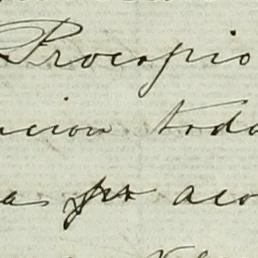 Procopio
acion toda
a por aco